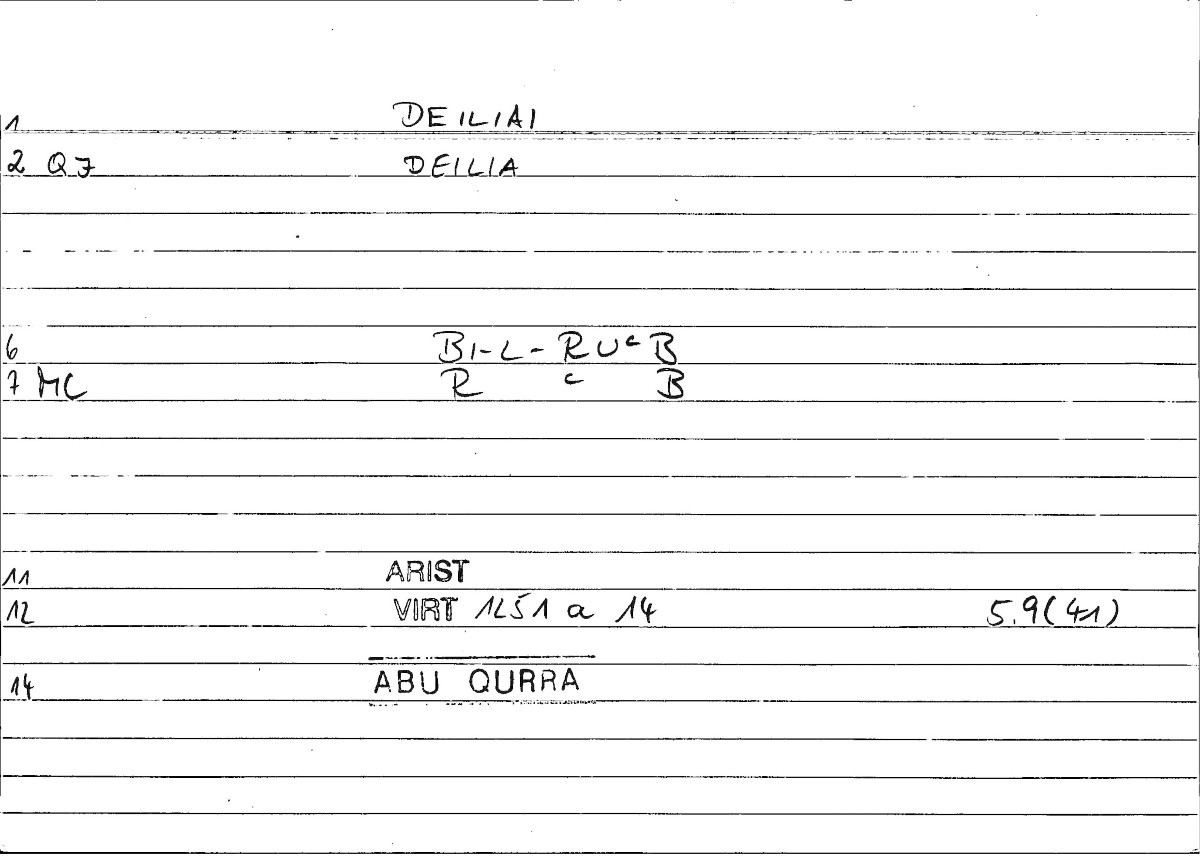 1 DEILIAI
2 Q7 DEILIA
6 BI-L-RUᶜB
7 MC R ᶜ B
11 ARIST
12 VIRT 1251 a 14 5.9(41)
14 ABU QURRA